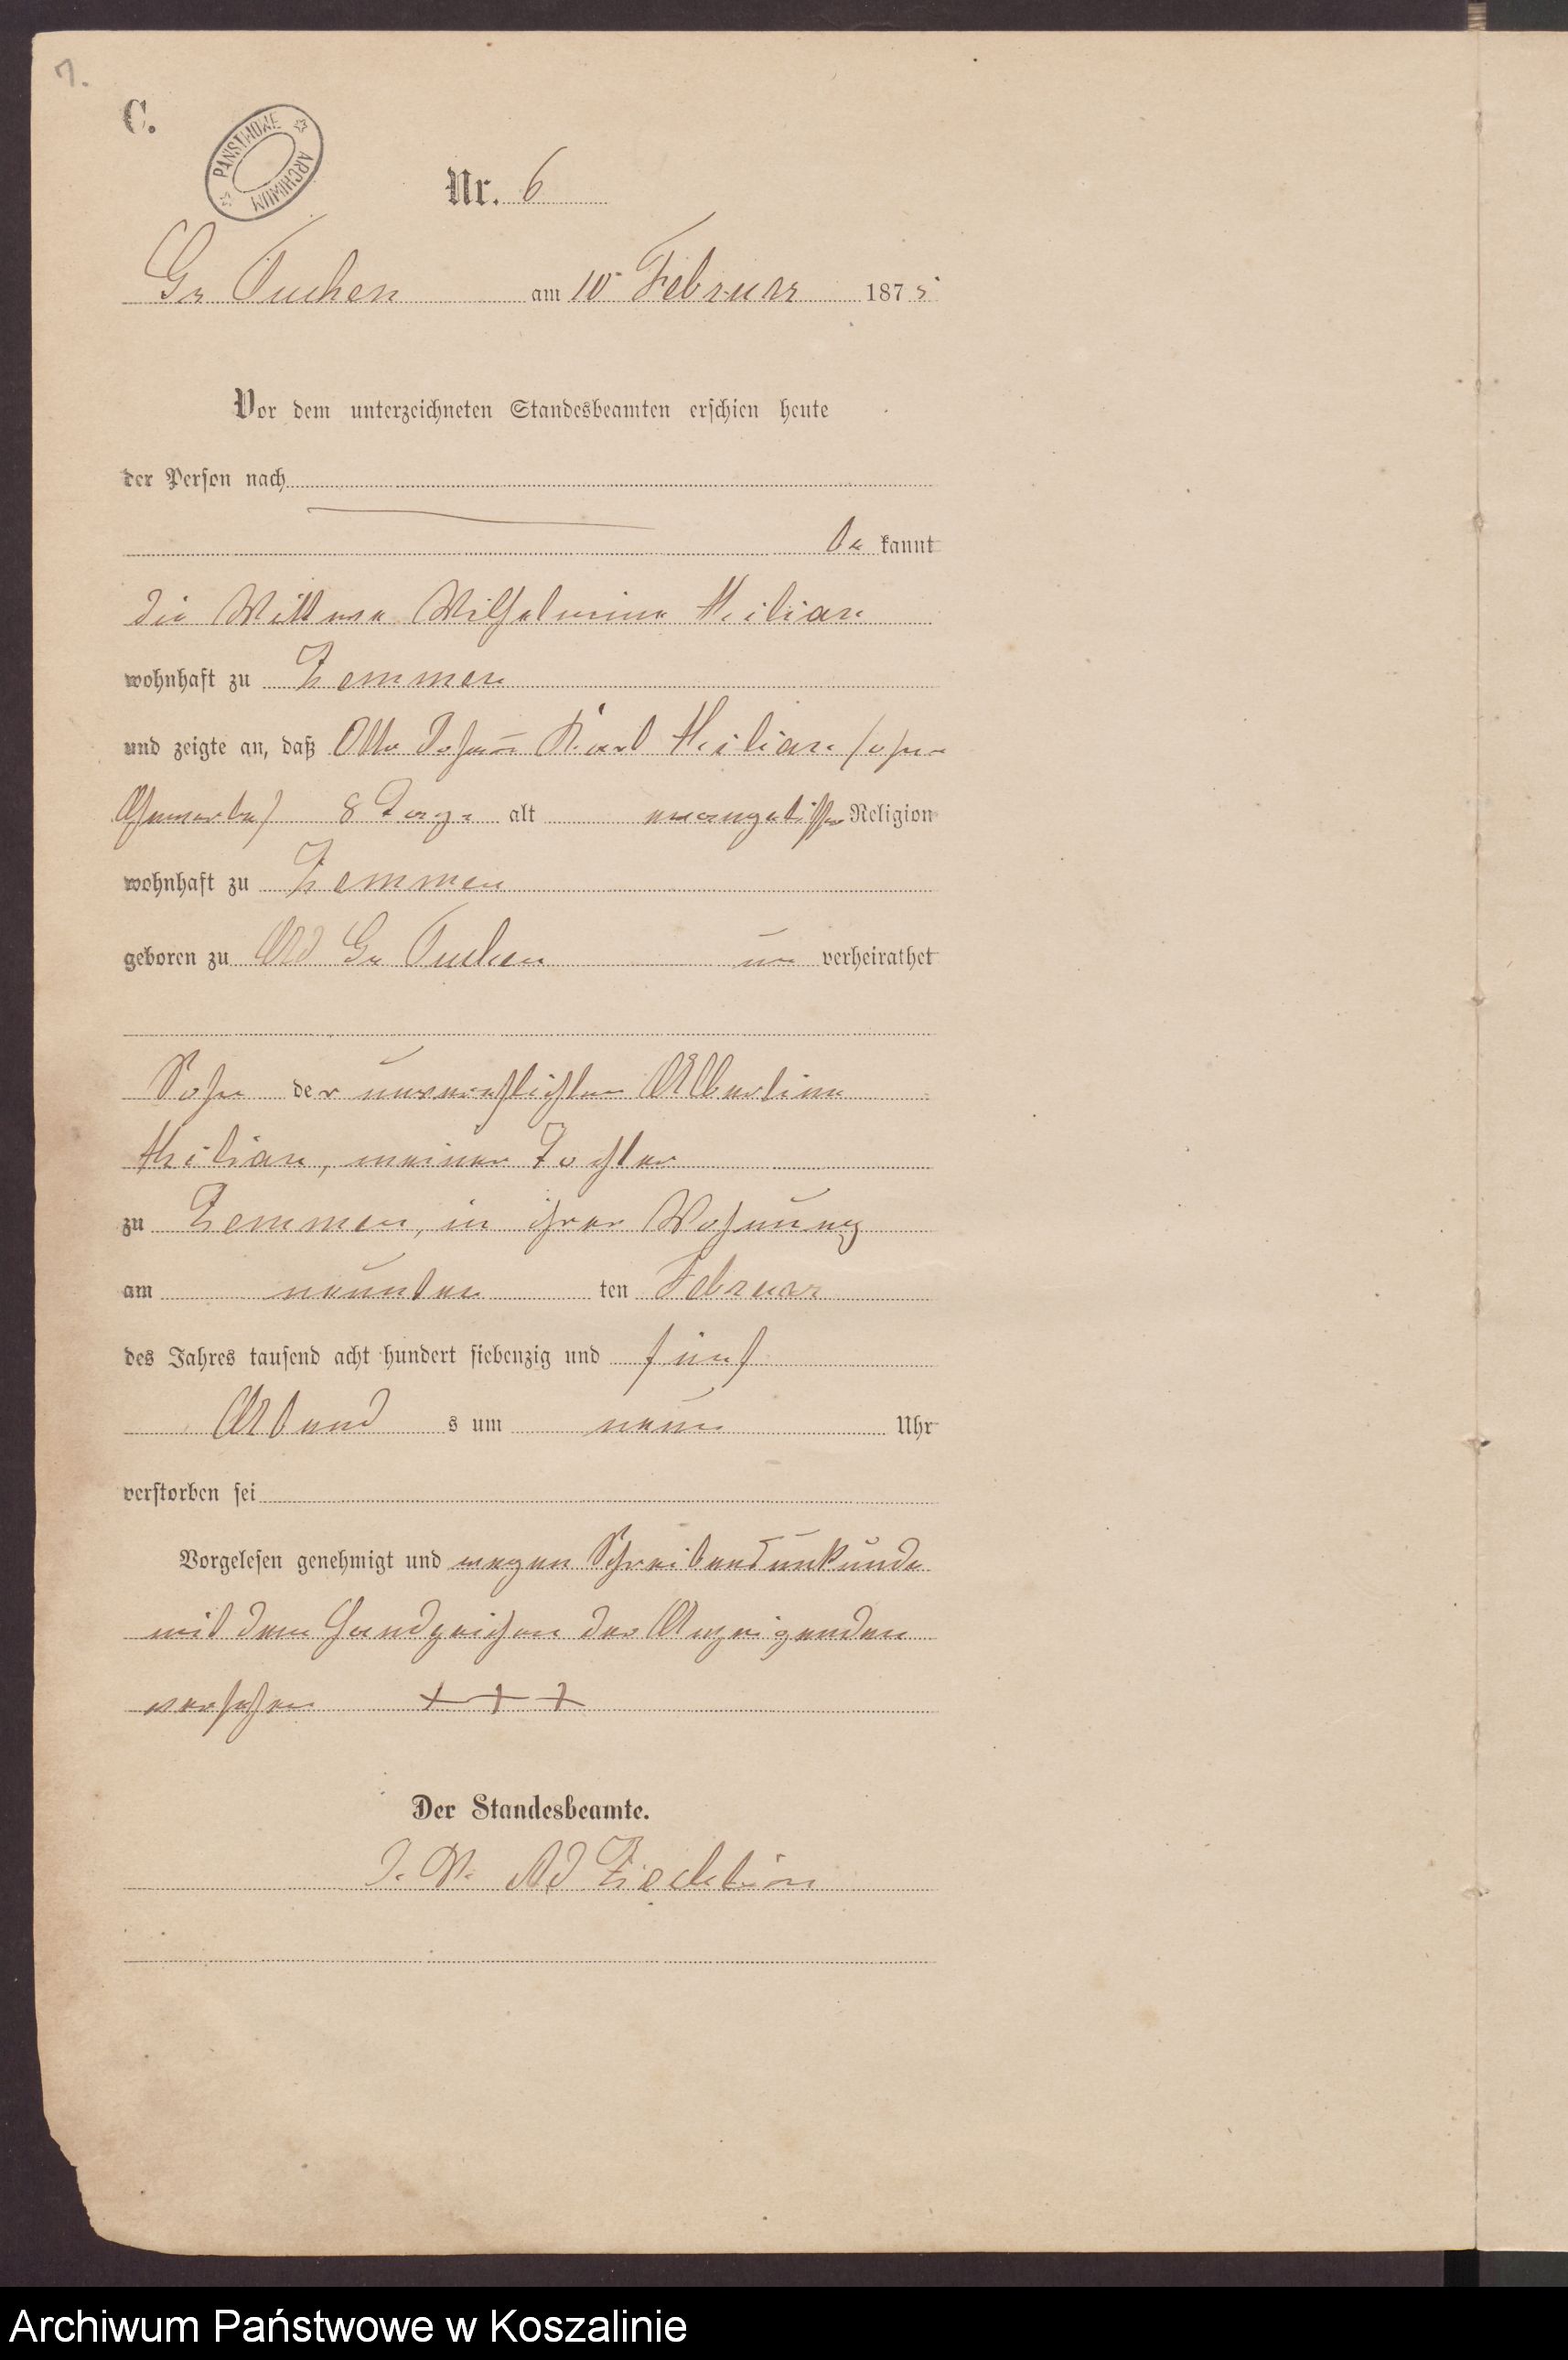 7.
C.
PAŃSTWOWE ARCHIWUM
Nr. 6
Gr Tuchen am 10 Februar 1875
Vor dem unterzeichneten Standesbeamten erschien heute
der Person nach
be kannt
die Wittwe Wilhelmine
wohnhaft zu Zemmen
und zeigte an, daß Otto Johann Karl (ohne
Gewerbe) 8 Tage alt evangelischer Religion
wohnhaft zu Zemmen
geboren zu Gr Tuchen un verheirathet
Sohn der unverehlichten Albertine
meiner Tochter
zu Zemmen, in ihrer Wohnung
am neunten ten Februar
des Jahres tausend acht hundert siebenzig und fünf
Abend s um neun Uhr
verstorben sei
Vorgelesen genehmigt und wegen Schreibensunkunde
mit dem Handzeichen der Anzeigenden
versehen + + +
Der Standesbeamte.
Archiwum Państwowe w Koszalinie